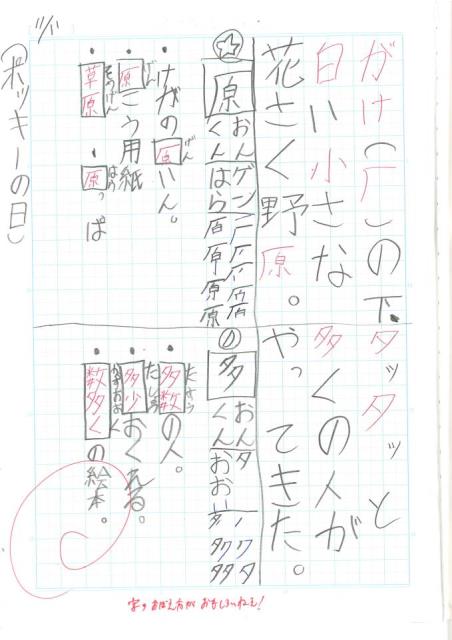 がけ(厂)の下、
白い小さな
花さく野原。
☆
原
おん ゲン
くん はら
・けがの原いん。
げん
・原こう用紙
げん
・草原 ・原っぱ
そうげん はら
タッタッと
多くの人が
やってきた。
多
おん タ
くん おおい
・多数の人。
たすう
・多少おくれる。
たしょう
・数多くの絵本。
かずおお
11/11
(ポッキーの日)
字のおぼえ方がおもしろいねえ!